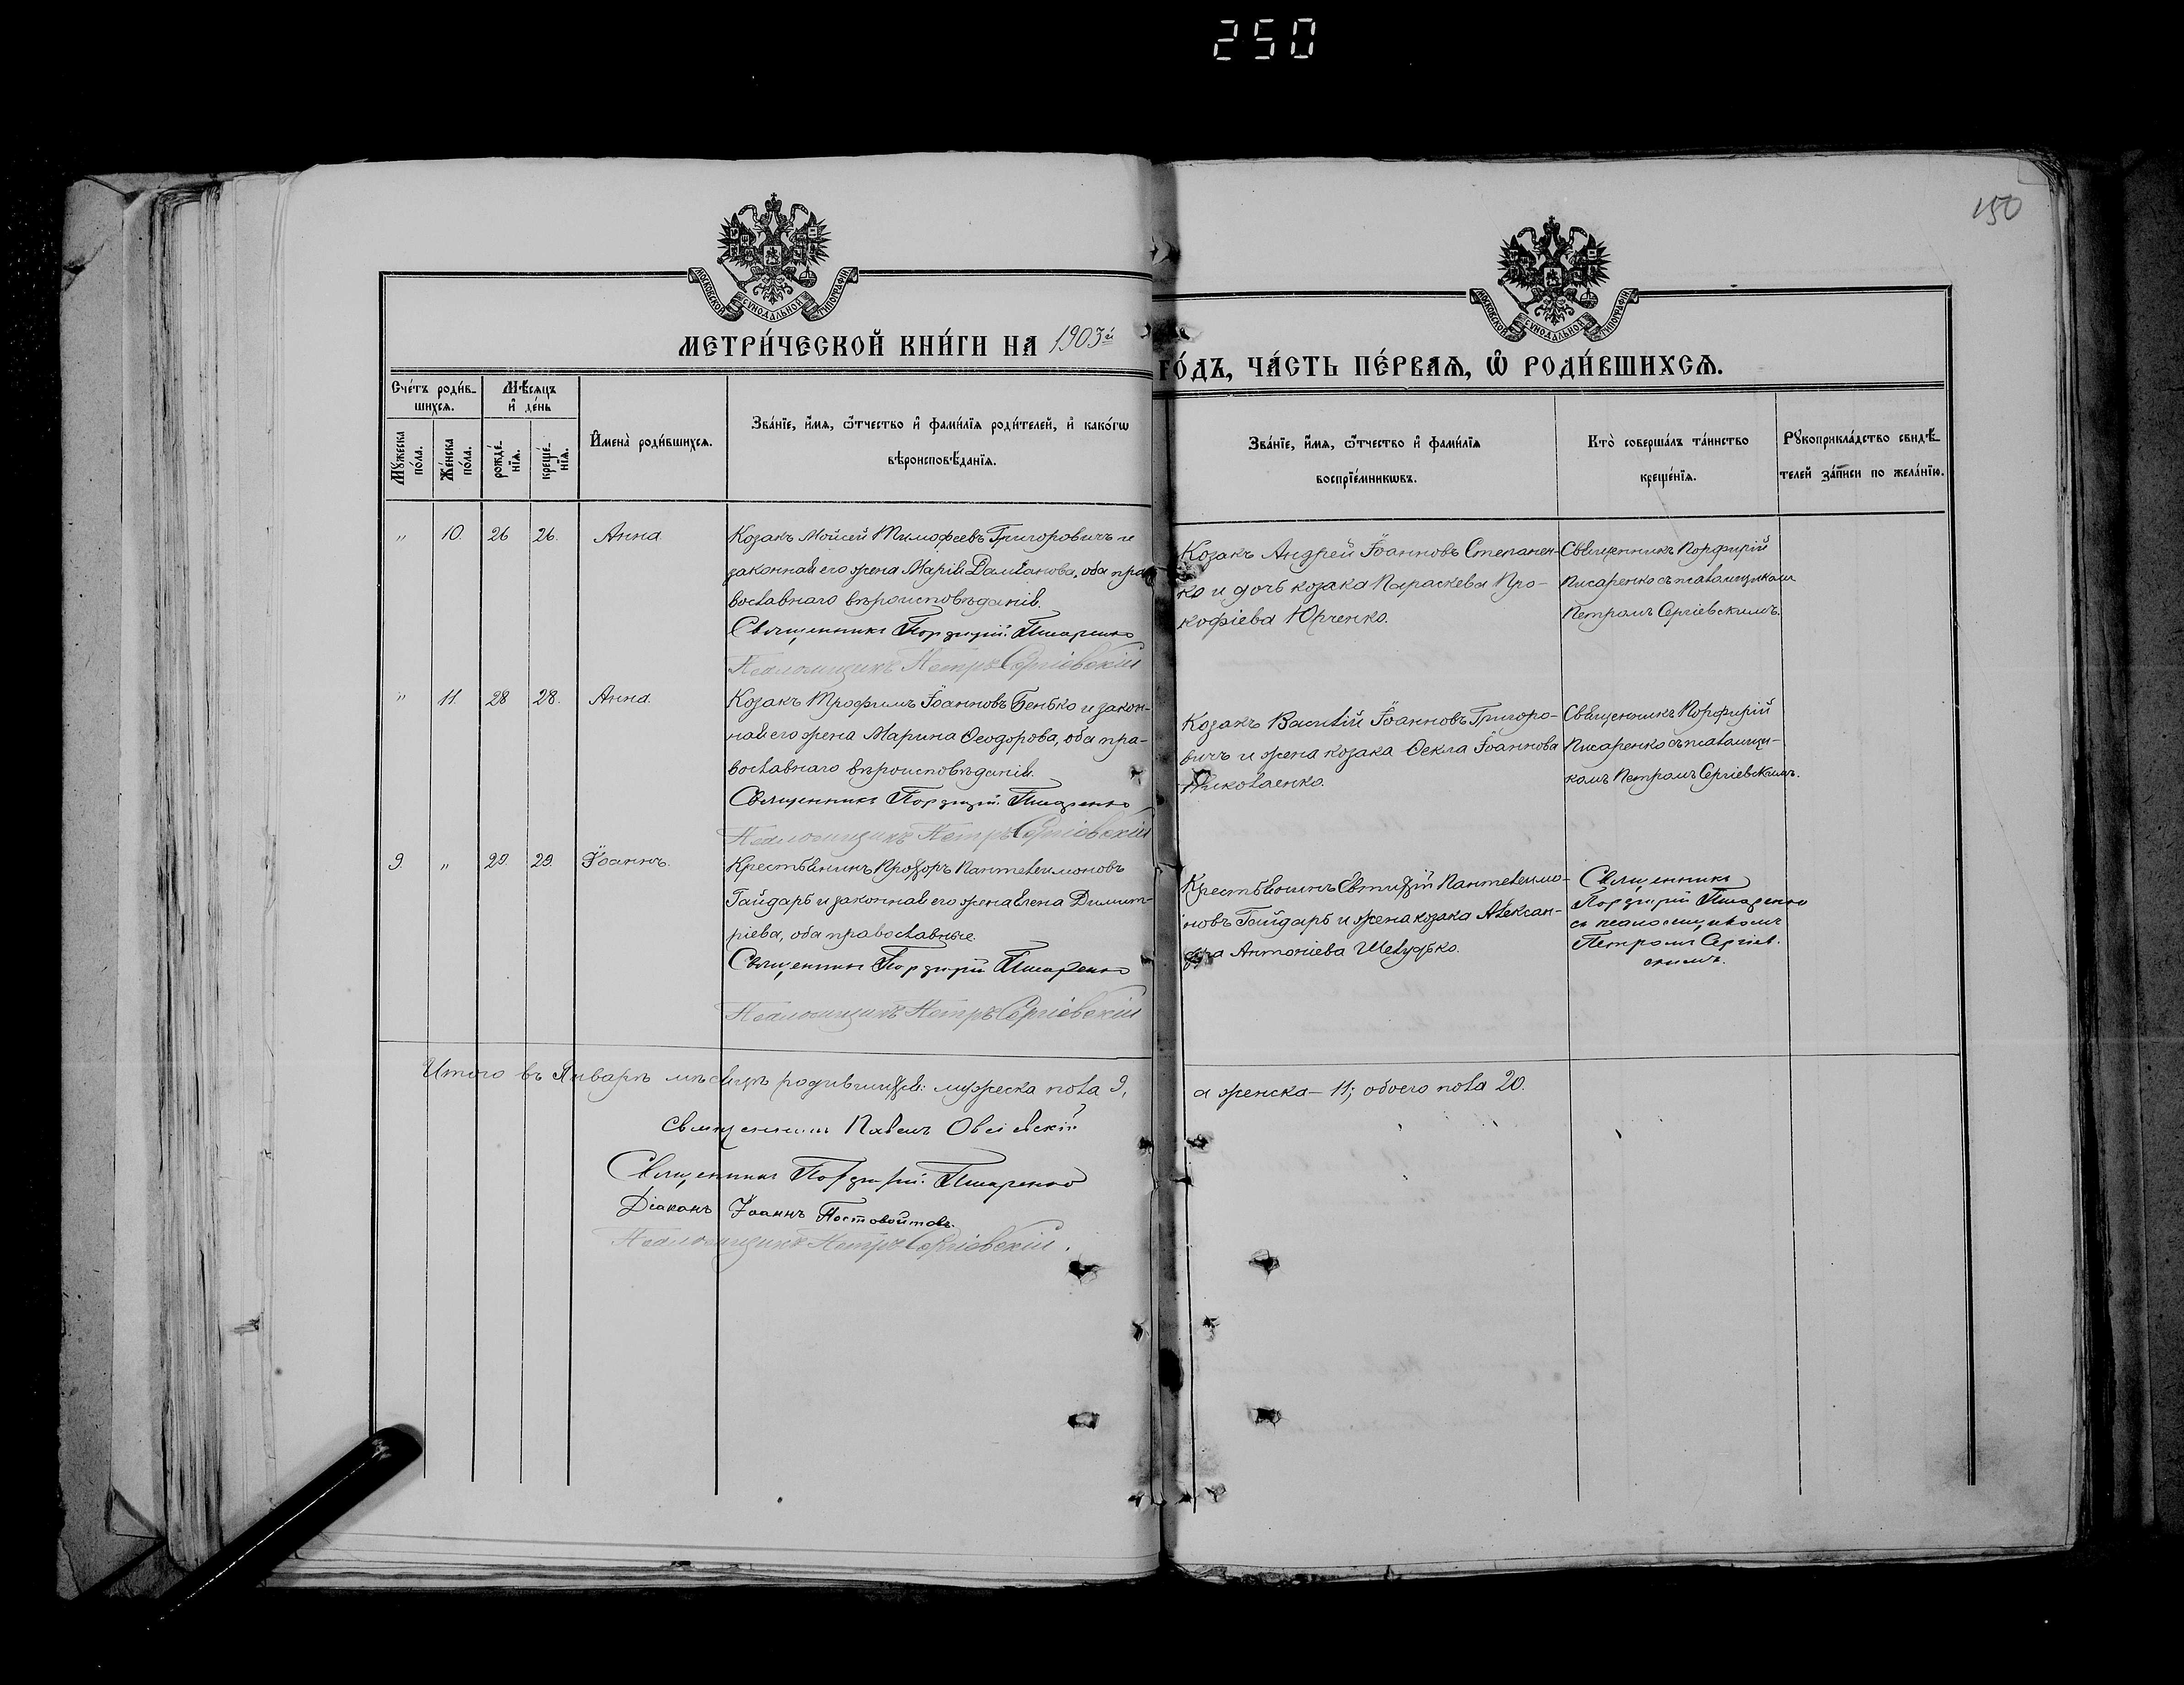 250
150
МОСКОВСКОЙ СѴНОДАЛЬНОЙ ТИПОГРАФІИ
МОСКОВСКОЙ СѴНОДАЛЬНОЙ ТИПОГРАФІИ
МЕТРИ́ЧЕСКОЙ КНИ́ГИ НА 1903й
ГО́ДЪ, ЧА́СТЬ ПЕ́РВАѦ, Ѡ҆ РОДИ́ВШИХСѦ.
Сче́тъ роди́в-
шихсѧ.
Мѣ́сѧцъ
и҆ де́нь
Мꙋ́жеска
по́ла.
Же́нска
по́ла.
рожде́-
нїѧ.
креще́-
нїѧ.
И҆мена̀ роди́вшихсѧ.
Зва́нїе, и҆́мѧ, ѻ҆́тчество и҆ фами́лїѧ роди́телей, и҆ како́гѡ
вѣроисповѣ́данїѧ.
Зва́нїе, и҆́мѧ, ѻ҆́тчество и҆ фами́лїѧ
воспрїе́мникѡвъ.
Кто̀ соверша́лъ та́инство
креще́нїѧ.
Рꙋкоприкла́дство свидѣ́-
телей за́писи по жела́нїю.
" 10. 26 26. Анна.
Козакъ Мойсей Тимофеевъ Григоровичъ и
законная его жена Марія Даміанова, оба пра-
вославнаго вѣроисповѣданія.
Священникъ Порфирій Писаренко
Псаломщикъ Петръ Сергіевскій
Козакъ Андрей Іоанновъ Степанен-
ко и дочь козака Параскева Про-
кофіева Юрченко.
Священникъ Порфирій
Писаренко съ псаломщикомъ
Петромъ Сергіевскимъ.
" 11. 28 28. Анна.
Козакъ Трофимъ Іоанновъ Бенько и закон-
ная его жена Марина Ѳеодорова, оба пра-
вославнаго вѣроисповѣданія.
Священникъ Порфирій Писаренко
Псаломщикъ Петръ Сергіевскій
Козакъ Василій Іоанновъ Григоро-
вичъ и жена козака Ѳекла Іоаннова
Николаенко.
Священникъ Порфирій
Писаренко съ псаломщи-
комъ Петромъ Сергіевскимъ.
9. " 29. 29. Іоаннъ.
Крестьянинъ Прохоръ Пантелеимоновъ
Гайдарь и законная его жена Елена Димит-
ріева, оба православные.
Священникъ Порфирій Писаренко
Псаломщикъ Петръ Сергіевскій
Крестьянинъ Евтихій Пантелеимо-
новъ Гайдарь и жена козака Алексан-
дра Антоніева Шелудько.
Священникъ
Порфирій Писаренко
съ псаломщикомъ
Петромъ Сергіев-
скимъ.
Итого въ Январѣ мѣсяцѣ родившихся: мужеска пола 9,
а женска – 11; обоего пола 20.
Священникъ Павелъ
Священникъ Порфирій Писаренко
Діаконъ Іоаннъ Постовойтовъ.
Псаломщикъ Петръ Сергіевскій.